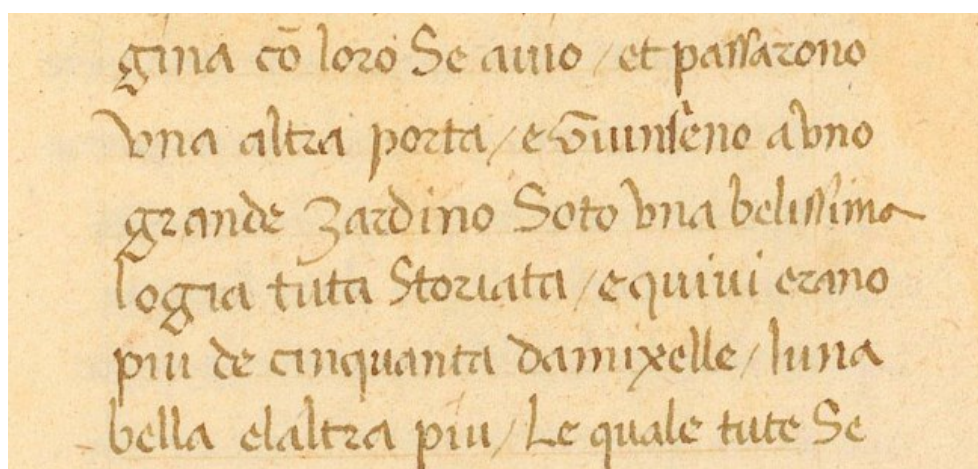 gina cō loro Se auio / et passarono
vna altra porta / e Giunsēno a vno
grande Zardino Soto vna belissima
logia tuta Storiata / e quiui erano
piu de cinquanta damixelle / luna
bella elaltra piu / Le quale tute Se